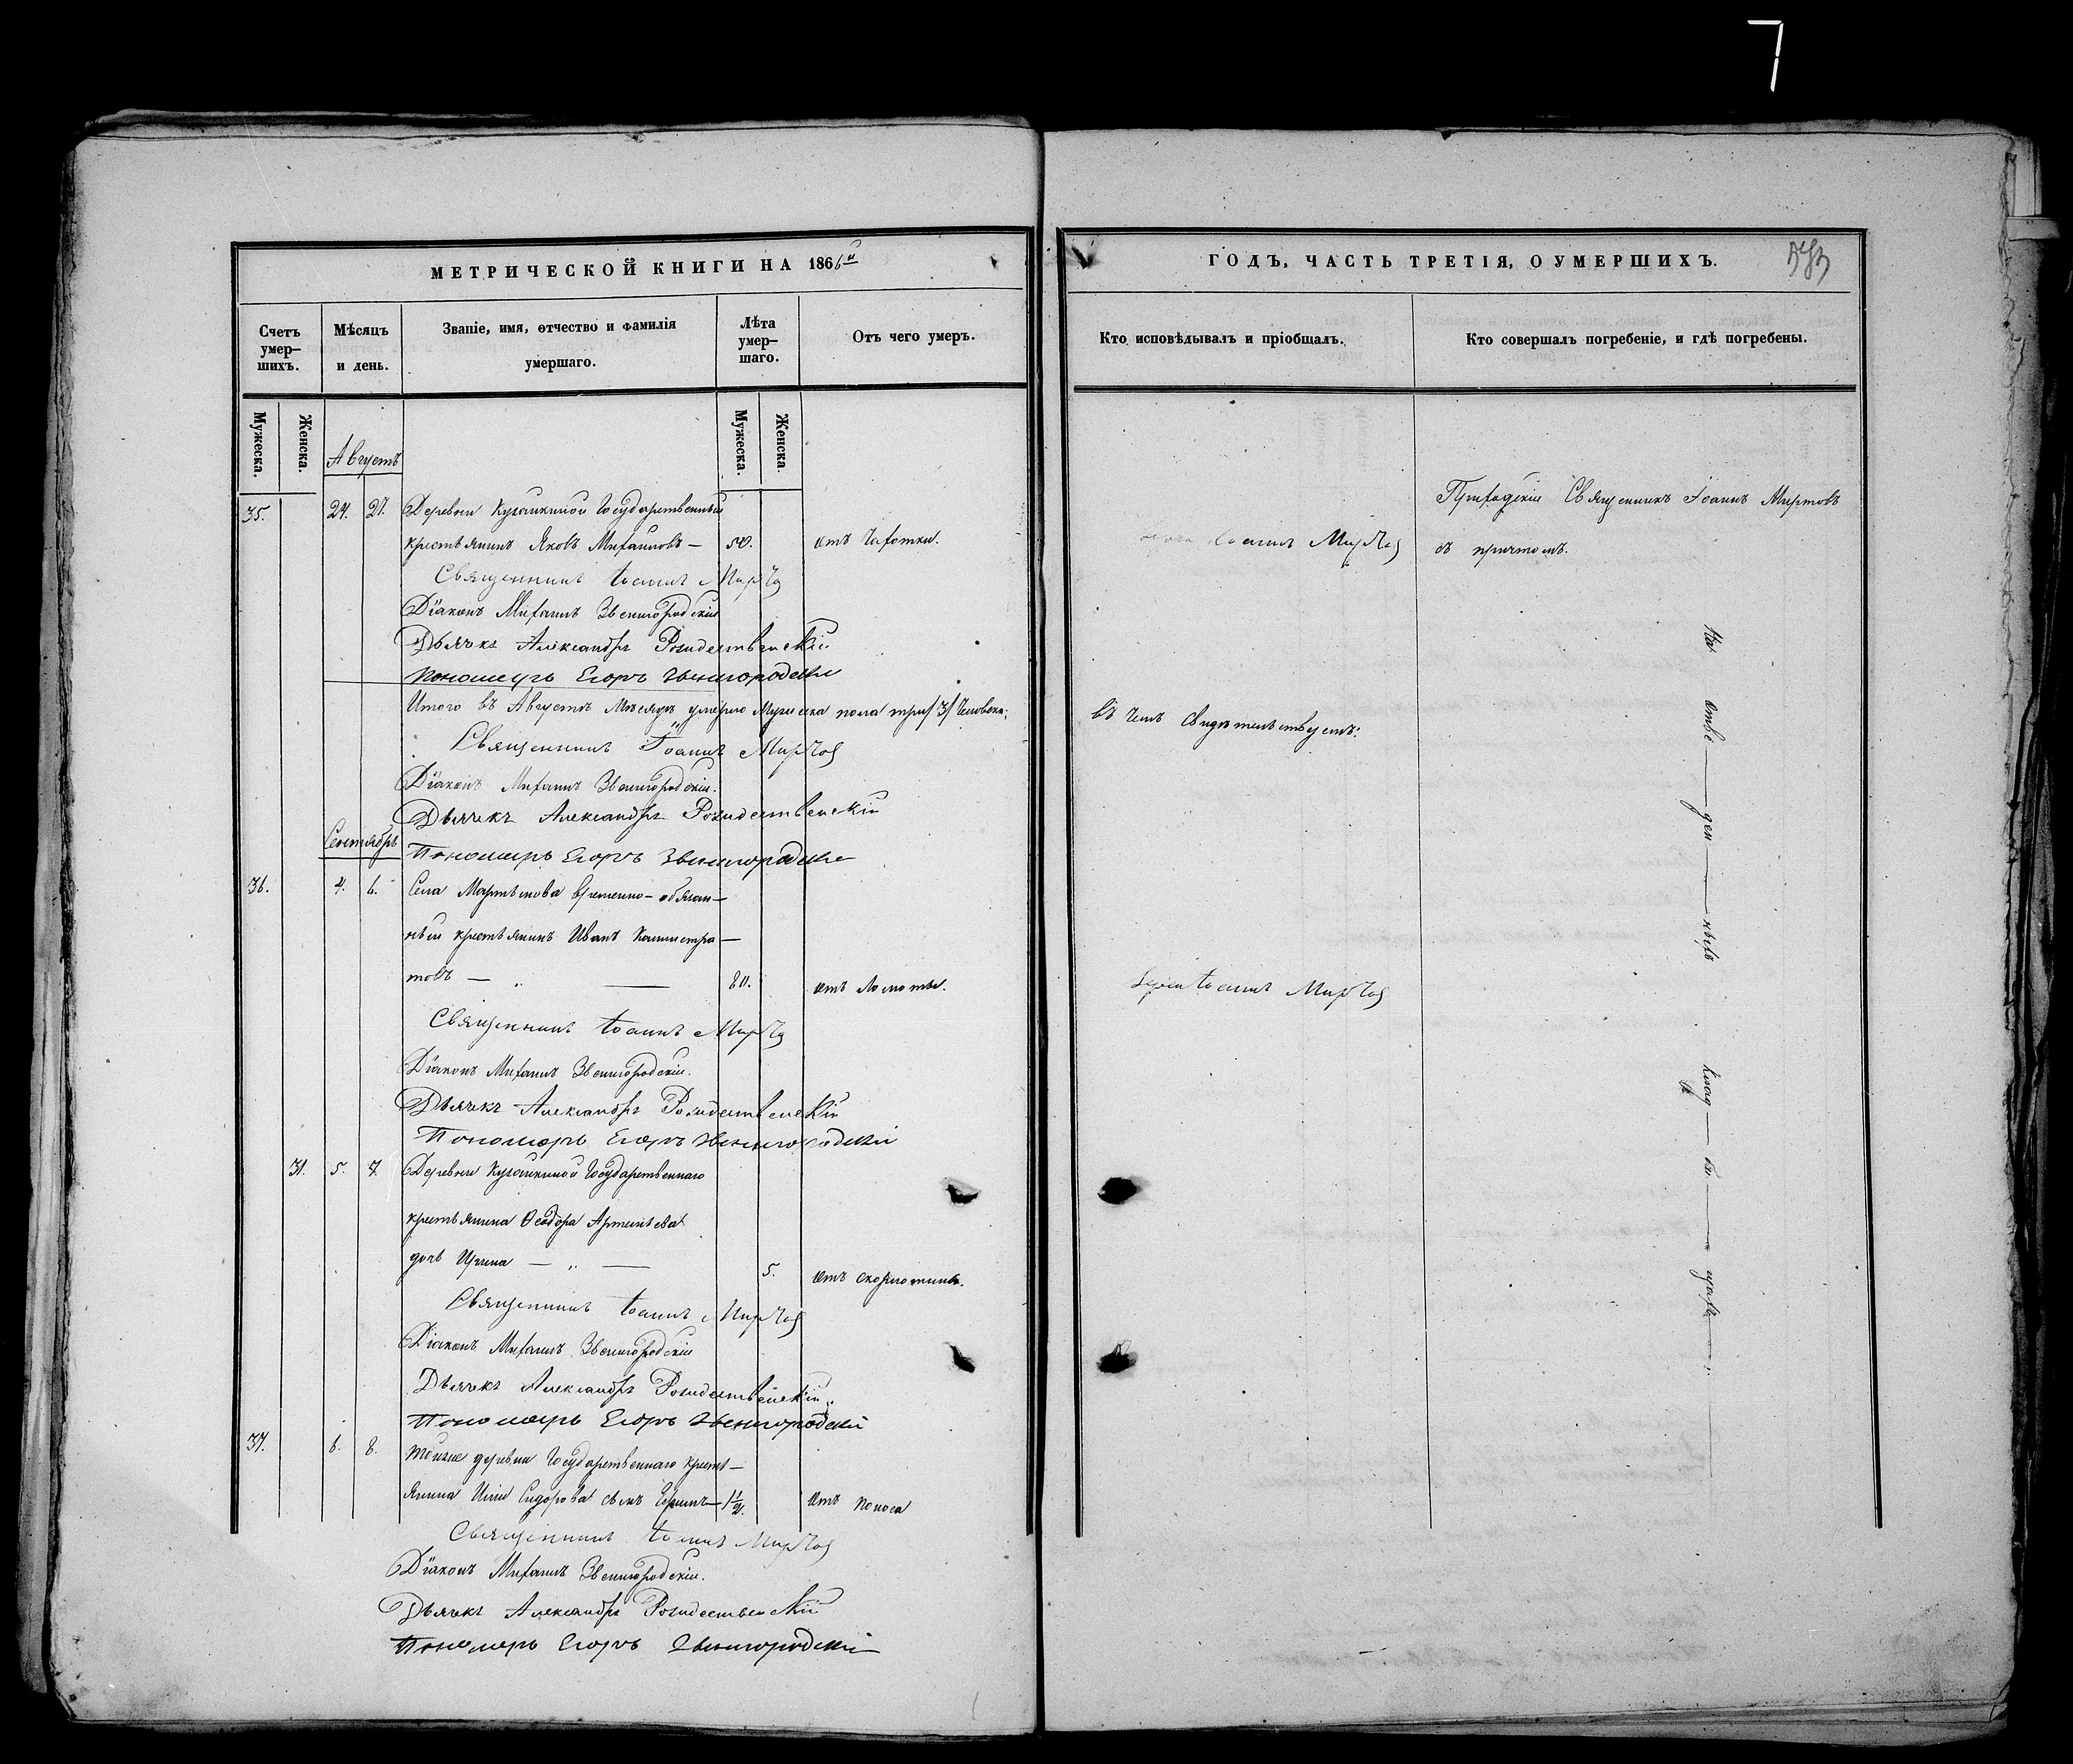 7
МЕТРИЧЕСКОЙ КНИГИ НА 1866й
Счетъ умер-
шихъ.
Мѣсяцъ
и день.
Званіе, имя, отчество и фамилія
умершаго.
Лѣта
умер-
шаго.
Отъ чего умеръ.
Мужеска.
Женска.
Мужеска.
Женска.
Августъ
35. 24. 27. Деревни Кугушкиной Государственный
крестьянинъ Яковъ Михайловъ — 50. отъ чахотки.
Священникъ Іоаннъ Миртов
Діаконъ Михаилъ Звенигородскій
Дьячекъ Александръ Рождественскій
Пономарь Егоръ Звенигородскій
Итого въ Августѣ мѣсяцѣ умерло мужеска пола три /3/ человѣка;
Священникъ Іоаннъ Миртов
Діаконъ Михаилъ Звенигородскій.
Дьячекъ Александръ Рождественскій
Сентябрь
Пономарь Егоръ Звенигородскій
36. 4. 6. Села временно-обязан-
ный крестьянинъ Иванъ Калистра-
товъ — „ — 80. отъ ломоты.
Священникъ Іоаннъ Миртов
Діаконъ Михаилъ Звенигородскій.
Дьячекъ Александръ Рождественскій
Пономарь Егоръ Звенигородскій
31. 5. 7. Деревни Кугушкиной Государственнаго
крестьянина Ѳеодора Артемьева
дочь Ирина — „ — 5. отъ скорлотины.
Священникъ Іоаннъ Миртов
Діаконъ Михаилъ Звенигородскій
Дьячекъ Александръ Рождественскій
Пономарь Егоръ Звенигородскій
37. 6. 8. Тойже деревни Государственнаго кресть-
янина Ильи Сидорова сынъ 1½. отъ поноса
Священникъ Іоаннъ Миртов
Діаконъ Михаилъ Звенигородскій.
Дьячекъ Александръ Рождественскій
Пономарь Егоръ Звенигородскій
ГОДЪ, ЧАСТЬ ТРЕТІЯ, О УМЕРШИХЪ.
Кто исповѣдывалъ и пріобщалъ.
Кто совершалъ погребеніе, и гдѣ погребены.
Приходскій Священникъ Іоаннъ Миртовъ
съ причтомъ.
Іоаннъ Миртов
въ чемъ свидѣтельствуетъ:
Іерей Іоаннъ Миртов
На отве — ден — нѣхъ кладб — и — щахъ — .